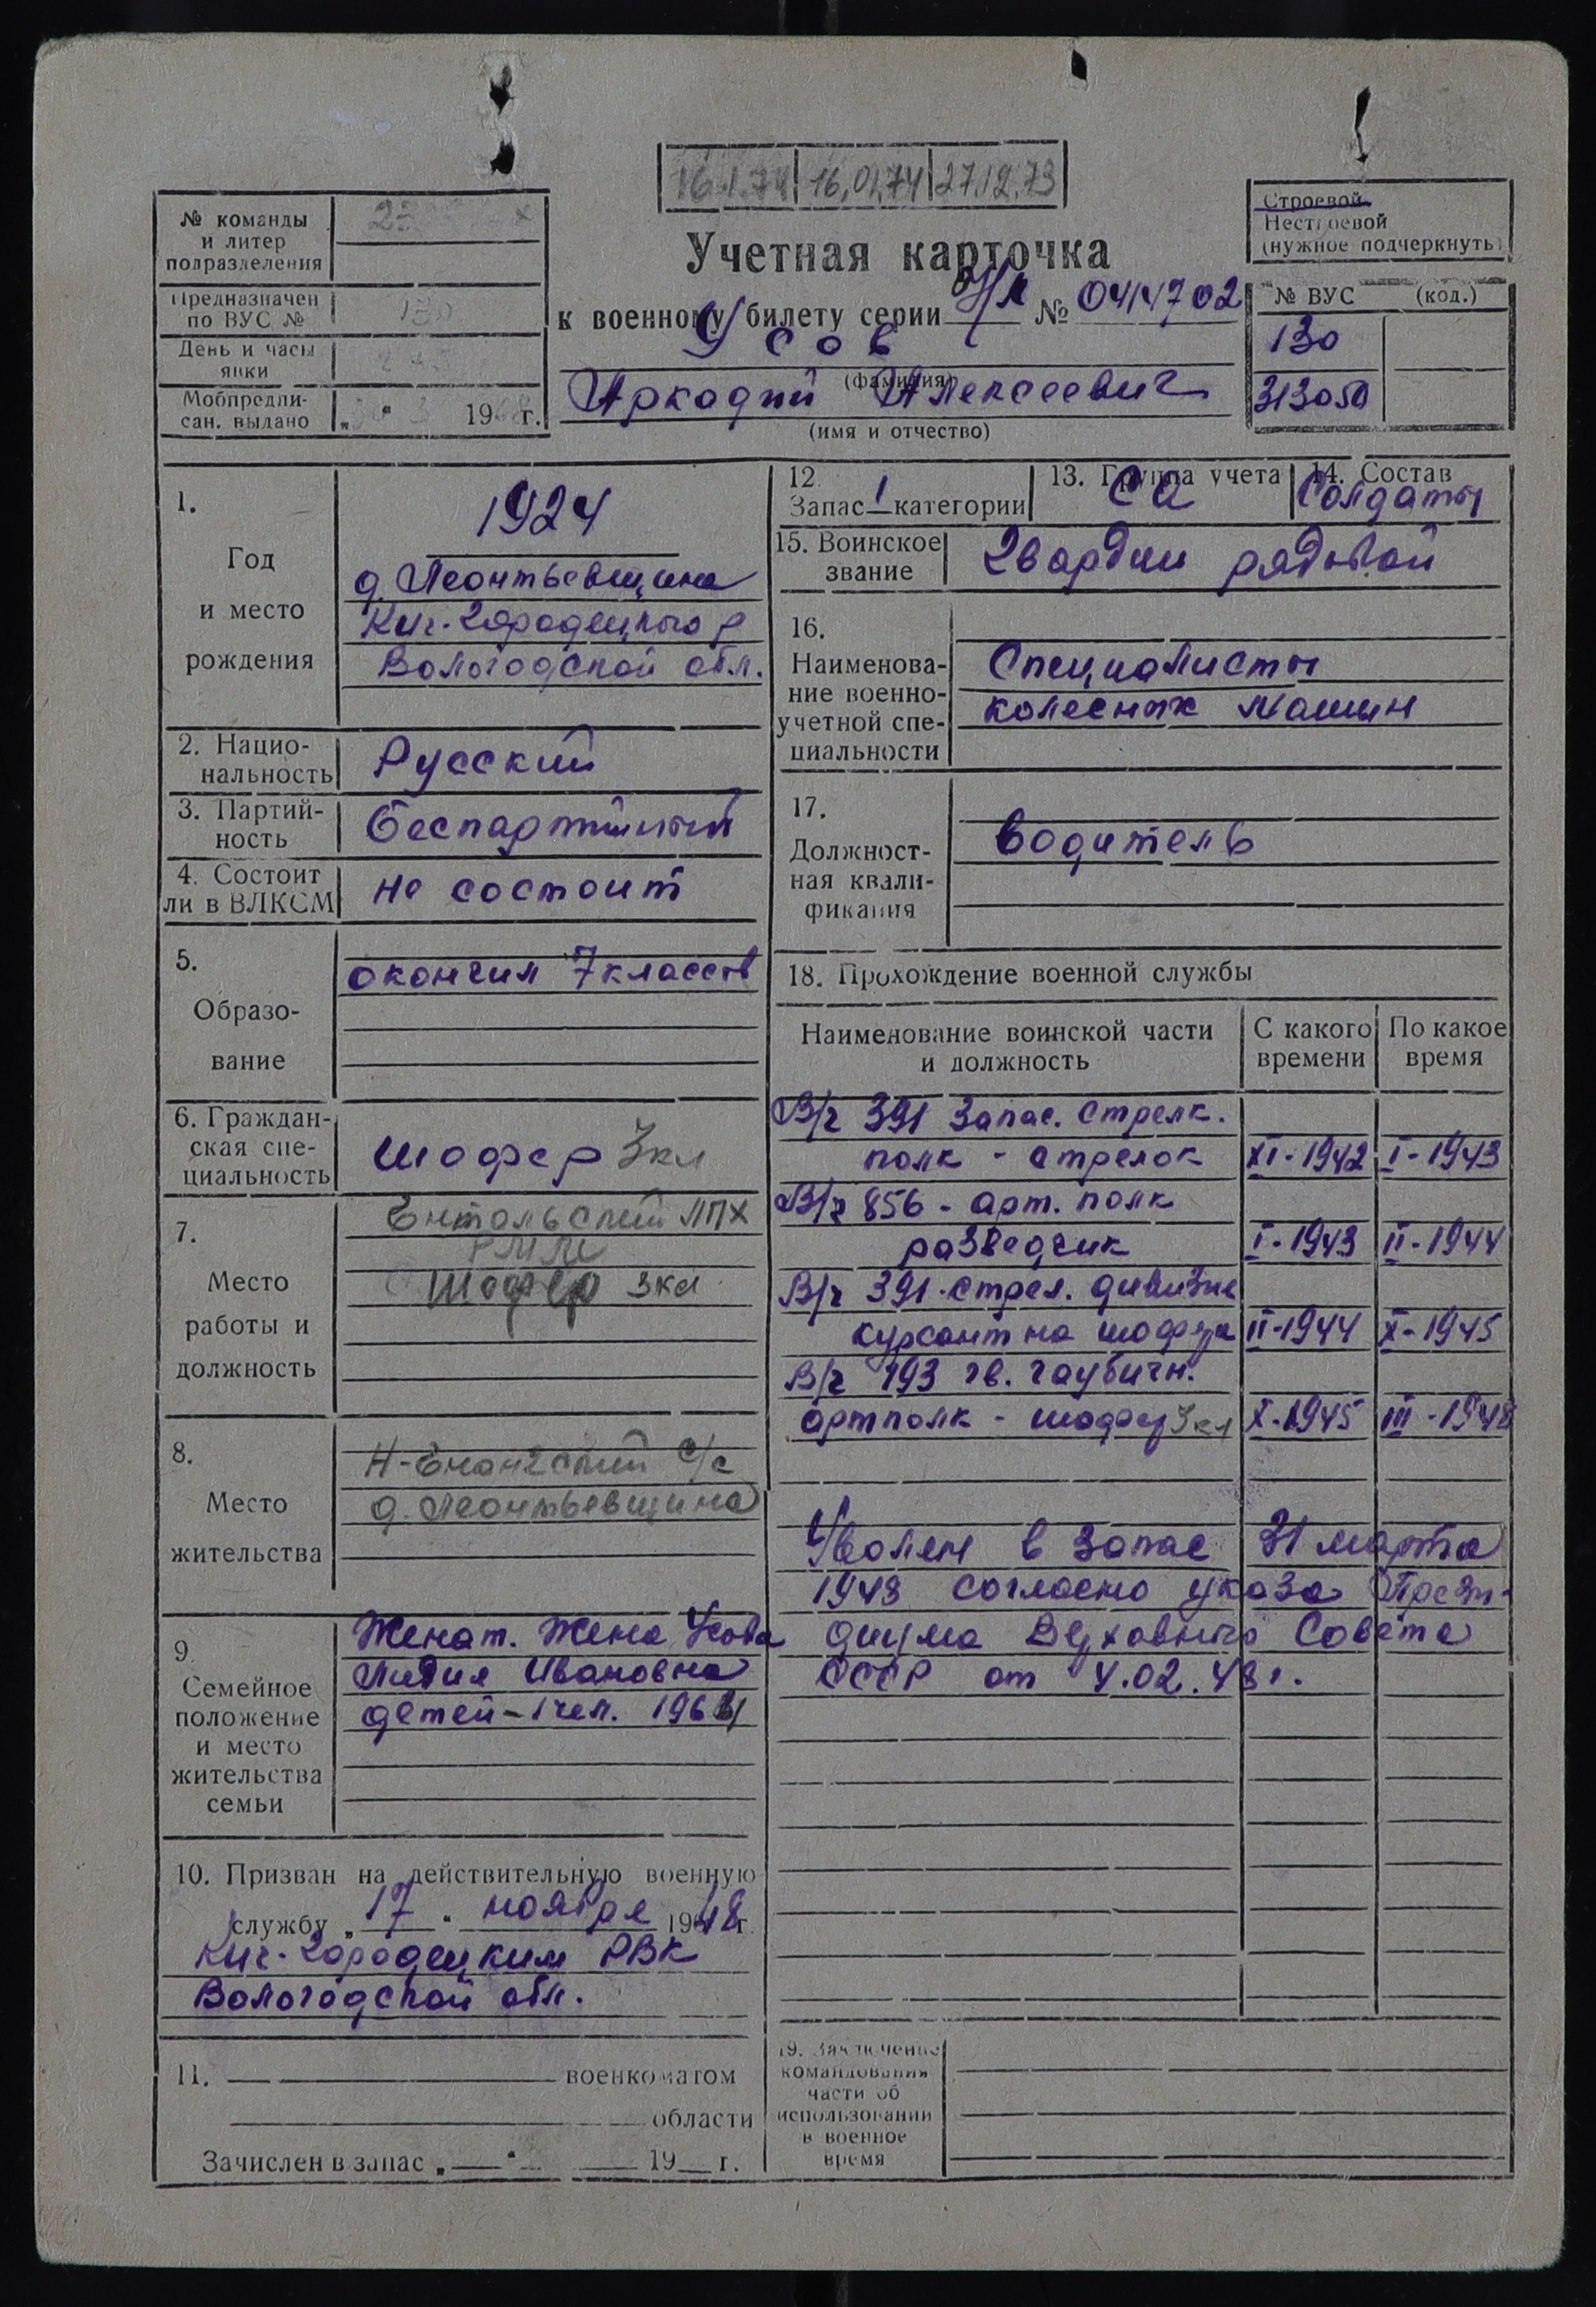 16.1.74 16.01.74 27.12.73
№ команды
и литер
подразделения
Предназначен
по ВУС №
130
День и часы
явки
Мобпредпи-
сан. выдано
" " 3 1968 г.
Учетная карточка
к военному билету серии № 0414702
Усов
(фамилия)
Аркадий Алексеевич
(имя и отчество)
Строевой
Нестроевой
(нужное подчеркнуть)
№ ВУС (код.)
130
313050
1.
Год
и место
рождения
1924
д. Леонтьевщина
Кич-Городецкого р
Вологодской обл.
2. Нацио-
нальность
Русский
3. Партий-
ность
беспартийный
4. Состоит
ли в ВЛКСМ
не состоит
5.
Образо-
вание
окончил 7 классов
6. Граждан-
ская спе-
циальность
шофер 3кл
7.
Место
работы и
должность
Ентальский ЛПХ
РММ
шофер 3кл
8.
Место
жительства
Н-Енангский с/с
д. Леонтьевщина
9.
Семейное
положение
и место
жительства
семьи
Женат. Жена Усова
Лидия Ивановна
детей - 1 чел. 1961
10. Призван на действительную военную
службу „ 17 " ноября 19 г.
Кич-Городецким РВК
Вологодской обл.
11. военкоматом
области
Зачислен в запас „ " 19 г.
12.
Запас 1 категории
13. Группа учета
СА
14. Состав
Солдаты
15. Воинское
звание
Гвардии рядовой
16.
Наименова-
ние военно-
учетной спе-
циальности
Специалисты
колесных машин
17.
Должност-
ная квали-
фикация
водитель
18. Прохождение военной службы
Наименование воинской части
и должность
С какого
времени
По какое
время
В/ч 391 Запас. стрелк.
полк - стрелок XI-1942 I-1943
В/ч 856 - арт. полк
разведчик I-1943 II-1944
В/ч 391 стрел. дивизия
курсант на шофера II-1944 X-1945
В/ч 193 гв. гаубичн.
артполк - шофер 3кл X-1945 III-1948
Уволен в запас 31 марта
1948 согласно указа Прези-
диума Верховного Совета
СССР от 4.02.48г.
19. Заключение
командования
части об
использовании
в военное
время